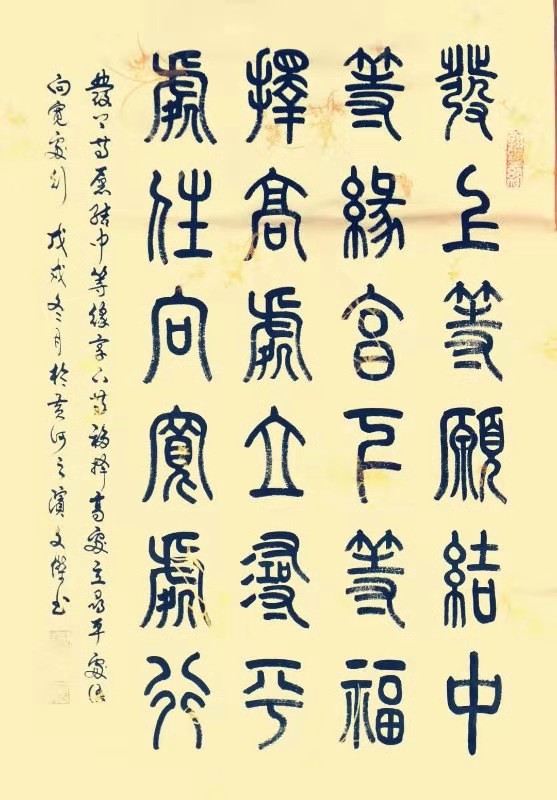 發上等願結中
等緣享下等福
擇高處立尋平
處住向寬處行
發上等愿結中等緣享下等福擇高處立尋平處住
向寬處行 戊戌冬月於黃河之濱文傑書